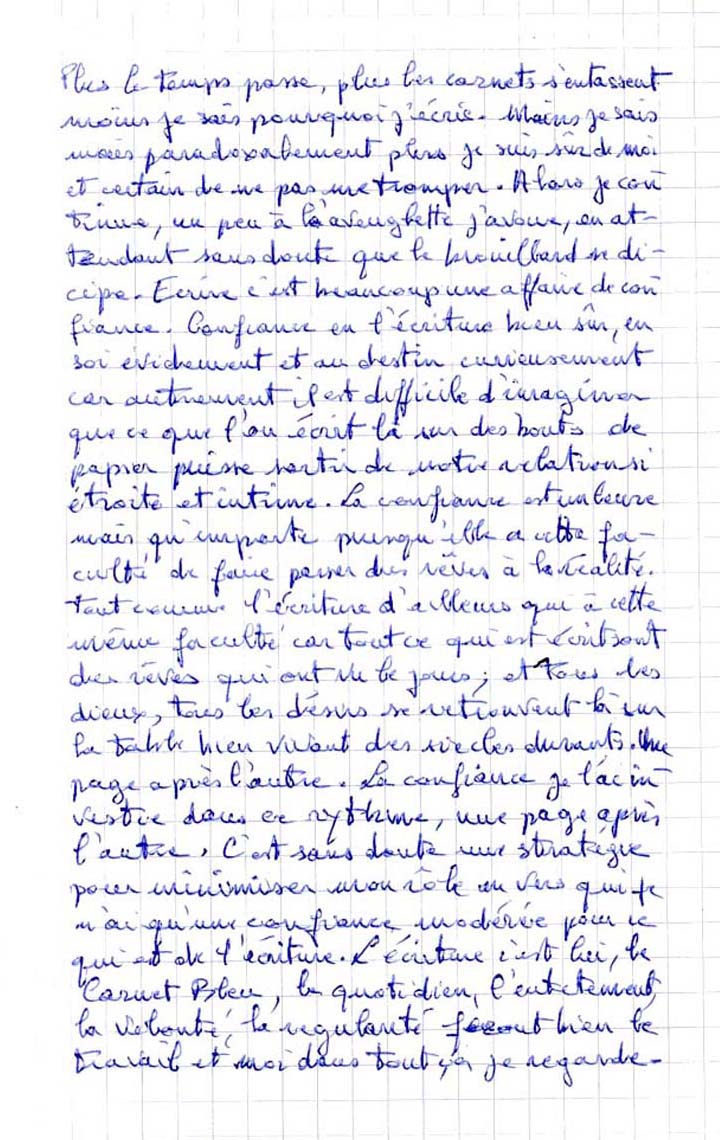 Plus le temps passe, plus les carnets s'entassent
moins je sais pourquoi j'écris. Moins je sais
mais paradoxalement plus je suis sûr de moi
et certain de ne pas me tromper. Alors je con
tinue, un peu à l'aveuglette j'avoue, en at-
tendant sans doute que le brouillard se di-
cipe. Ecrire c'est beaucoup une affaire de con
fiance. Confiance en l'écriture bien sûr, en
soi évidement et au destin curieusement
car autrement il est difficile d'imaginer
que ce que l'on écrit là sur des bouts de
papier puisse sortir de notre relation si
étroite et intime. La confiance est un leurre
mais qu'importe puisqu'elle a cette fa-
culté de faire passer des rêves à la réalité.
Tout comme l'écriture d'ailleurs qui à cette
même faculté car tout ce qui est écrit sont
des rêves qui ont vu le jour; et tous les
dieux, tous les désirs se retrouvent là sur
la table bien vivant des siècles durants. Une
page après l'autre. La confiance je l'ai in
vestie dans ce rythme, une page après
l'autre. C'est sans doute une stratégie
pour minimiser mon rôle envers qui je
n'ai qu'une confiance modérée pour ce
qui est de l'écriture. L'écriture c'est lui, le
Carnet Bleu, le quotidien, l'entêtement,
la volonté, la régularité feront bien le
travail et moi dans tout ça je regarde.